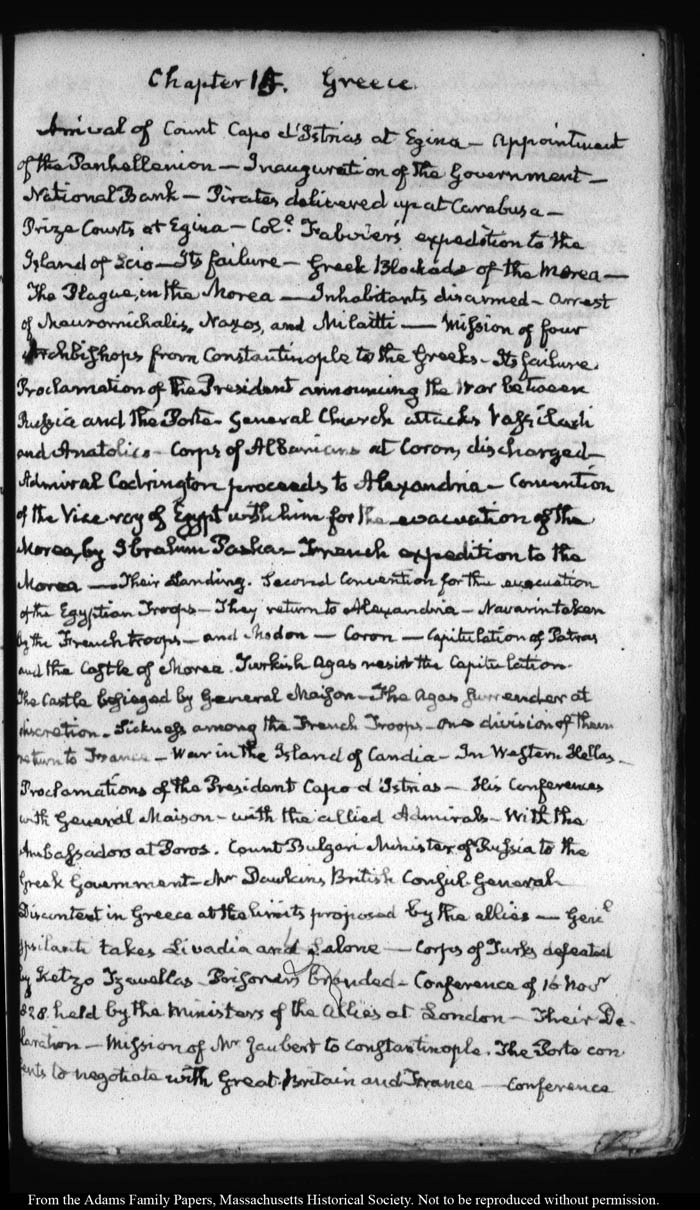 Chapter 15. Greece.
Arrival of Count Capo d'Istrias at Egina — Appointment
of the Panhellenion — Inauguration of the Government —
National Bank — Pirates delivered up at Carabusa —
Prize Courts at Egina — Col.^l Fabvier's expedition to the
Island of Scio — Its failure — Greek Blockade of the Morea —
The Plague, in the Morea — Inhabitants disarmed — Arrest
of Mauromichalis, Naxos, and Milaitti — Mission of four
Archbishops from Constantinople to the Greeks — Its failure.
Proclamation of the President announcing the War between
Russia and the Porte — General Church attacks Vassiladi
and Anatolico — Corps of Albanians at Coron, discharged —
Admiral Codrington proceeds to Alexandria — Convention
of the Vice-roy of Egypt with him for the evacuation of the
Morea, by Ibrahim Pasha — French expedition to the
Morea — Their Landing. Second Convention for the evacuation
of the Egyptian Troops — They return to Alexandria — Navarin taken
by the French troops — and Modon — Coron — Capitulation of Patras
and the Castle of Morea. Turkish Agas resist the Capitulation.
The Castle besieged by General Maison — The Agas surrender at
discretion. Sickness among the French Troops — one division of them
return to France — War in the Island of Candia — In Western Hellas —
Proclamations of the President Capo d'Istrias — His Conferences
with General Maison — with the allied Admirals — With the
Ambassadors at Poros. Count Bulgari Minister of Russia to the
Greek Government — Mr Dawkins British Consul-General
Discontent in Greece at the limits proposed by the allies — Gen^l
Ypsilanti takes Livadia and Salone — Corps of Turks defeated
by Ketzo Tzavellas. Prisoners branded — Conference of 16 Nov^r
1828. held by the Ministers of the allies at London — Their De-
claration — Mission of Mr Jaubert to Constantinople. The Porte con
sents to negotiate with Great-Britain and France — Conference
From the Adams Family Papers, Massachusetts Historical Society. Not to be reproduced without permission.